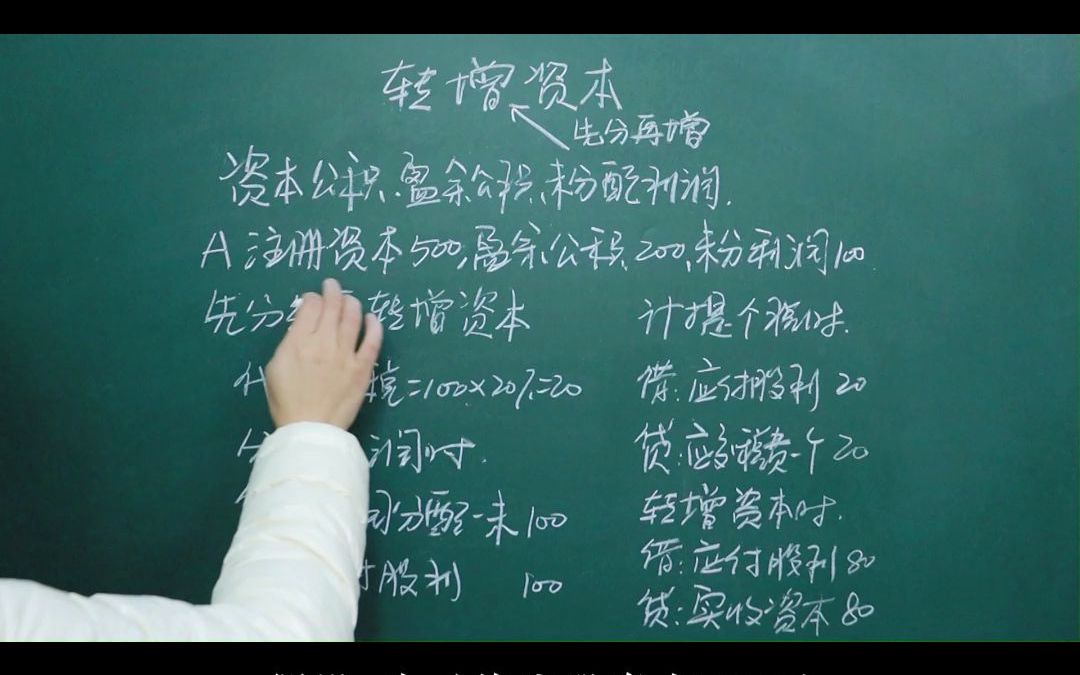 转增资本
先分再增
资本公积、盈余公积、未分配利润.
A 注册资本500,盈余公积200,未分利润100
先分 转增资本
税=100×20%=20
分 润时.
分配-未100
股利 100
计提个税时.
借:应付股利 20
贷:应交税费-个 20
转增资本时.
借:应付股利 80
贷:实收资本 80